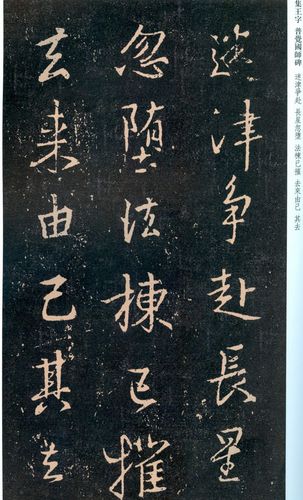 集王字 普覺國師碑 迷津爭赴 長星忽墮 法棟已摧 去來由己 其去
迷津爭赴長星
忽墮法棟已摧
去來由己其去